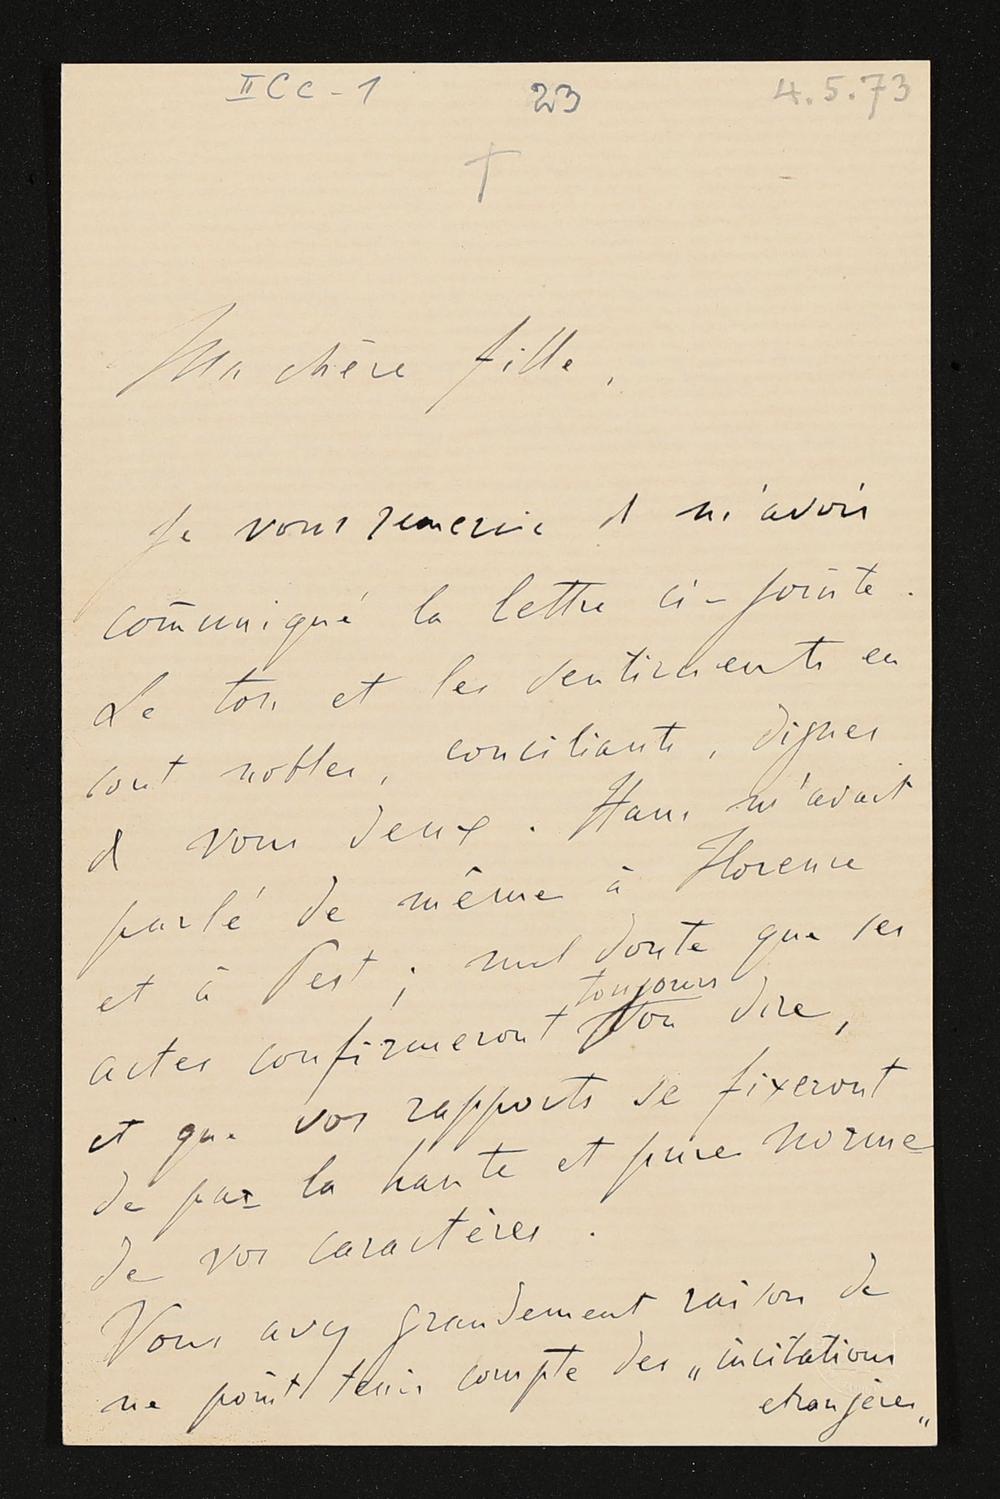 II C c - 1 23 4.5.73
†
Ma chère fille,
Je vous remercie d m'avoir
com̄uniqué la lettre ci-jointe.
Le ton et les sentiments en
sont nobles, conciliants, dignes
d vous deux. Hans m'avait
parlé de même à Florence
et à Pest; nul doute que ses
toujours
actes confirmeront son dire,
et que vos rapports se fixeront
de par la haute et pure norme
de vos caractères.
Vous avez grandement raison de
ne point tenir compte des „incitations
etrangères„